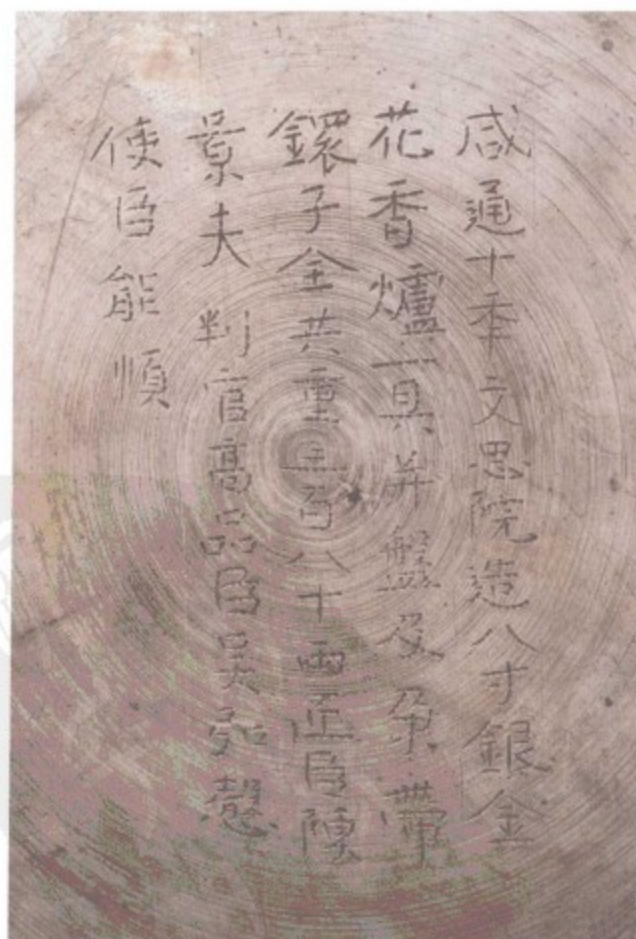 咸通十年文思院造八寸銀金
花香爐一具并盤及朶帶
鐶子全共重三百八十兩匠臣陳
景夫判官高品臣吳弘愨
使臣能順